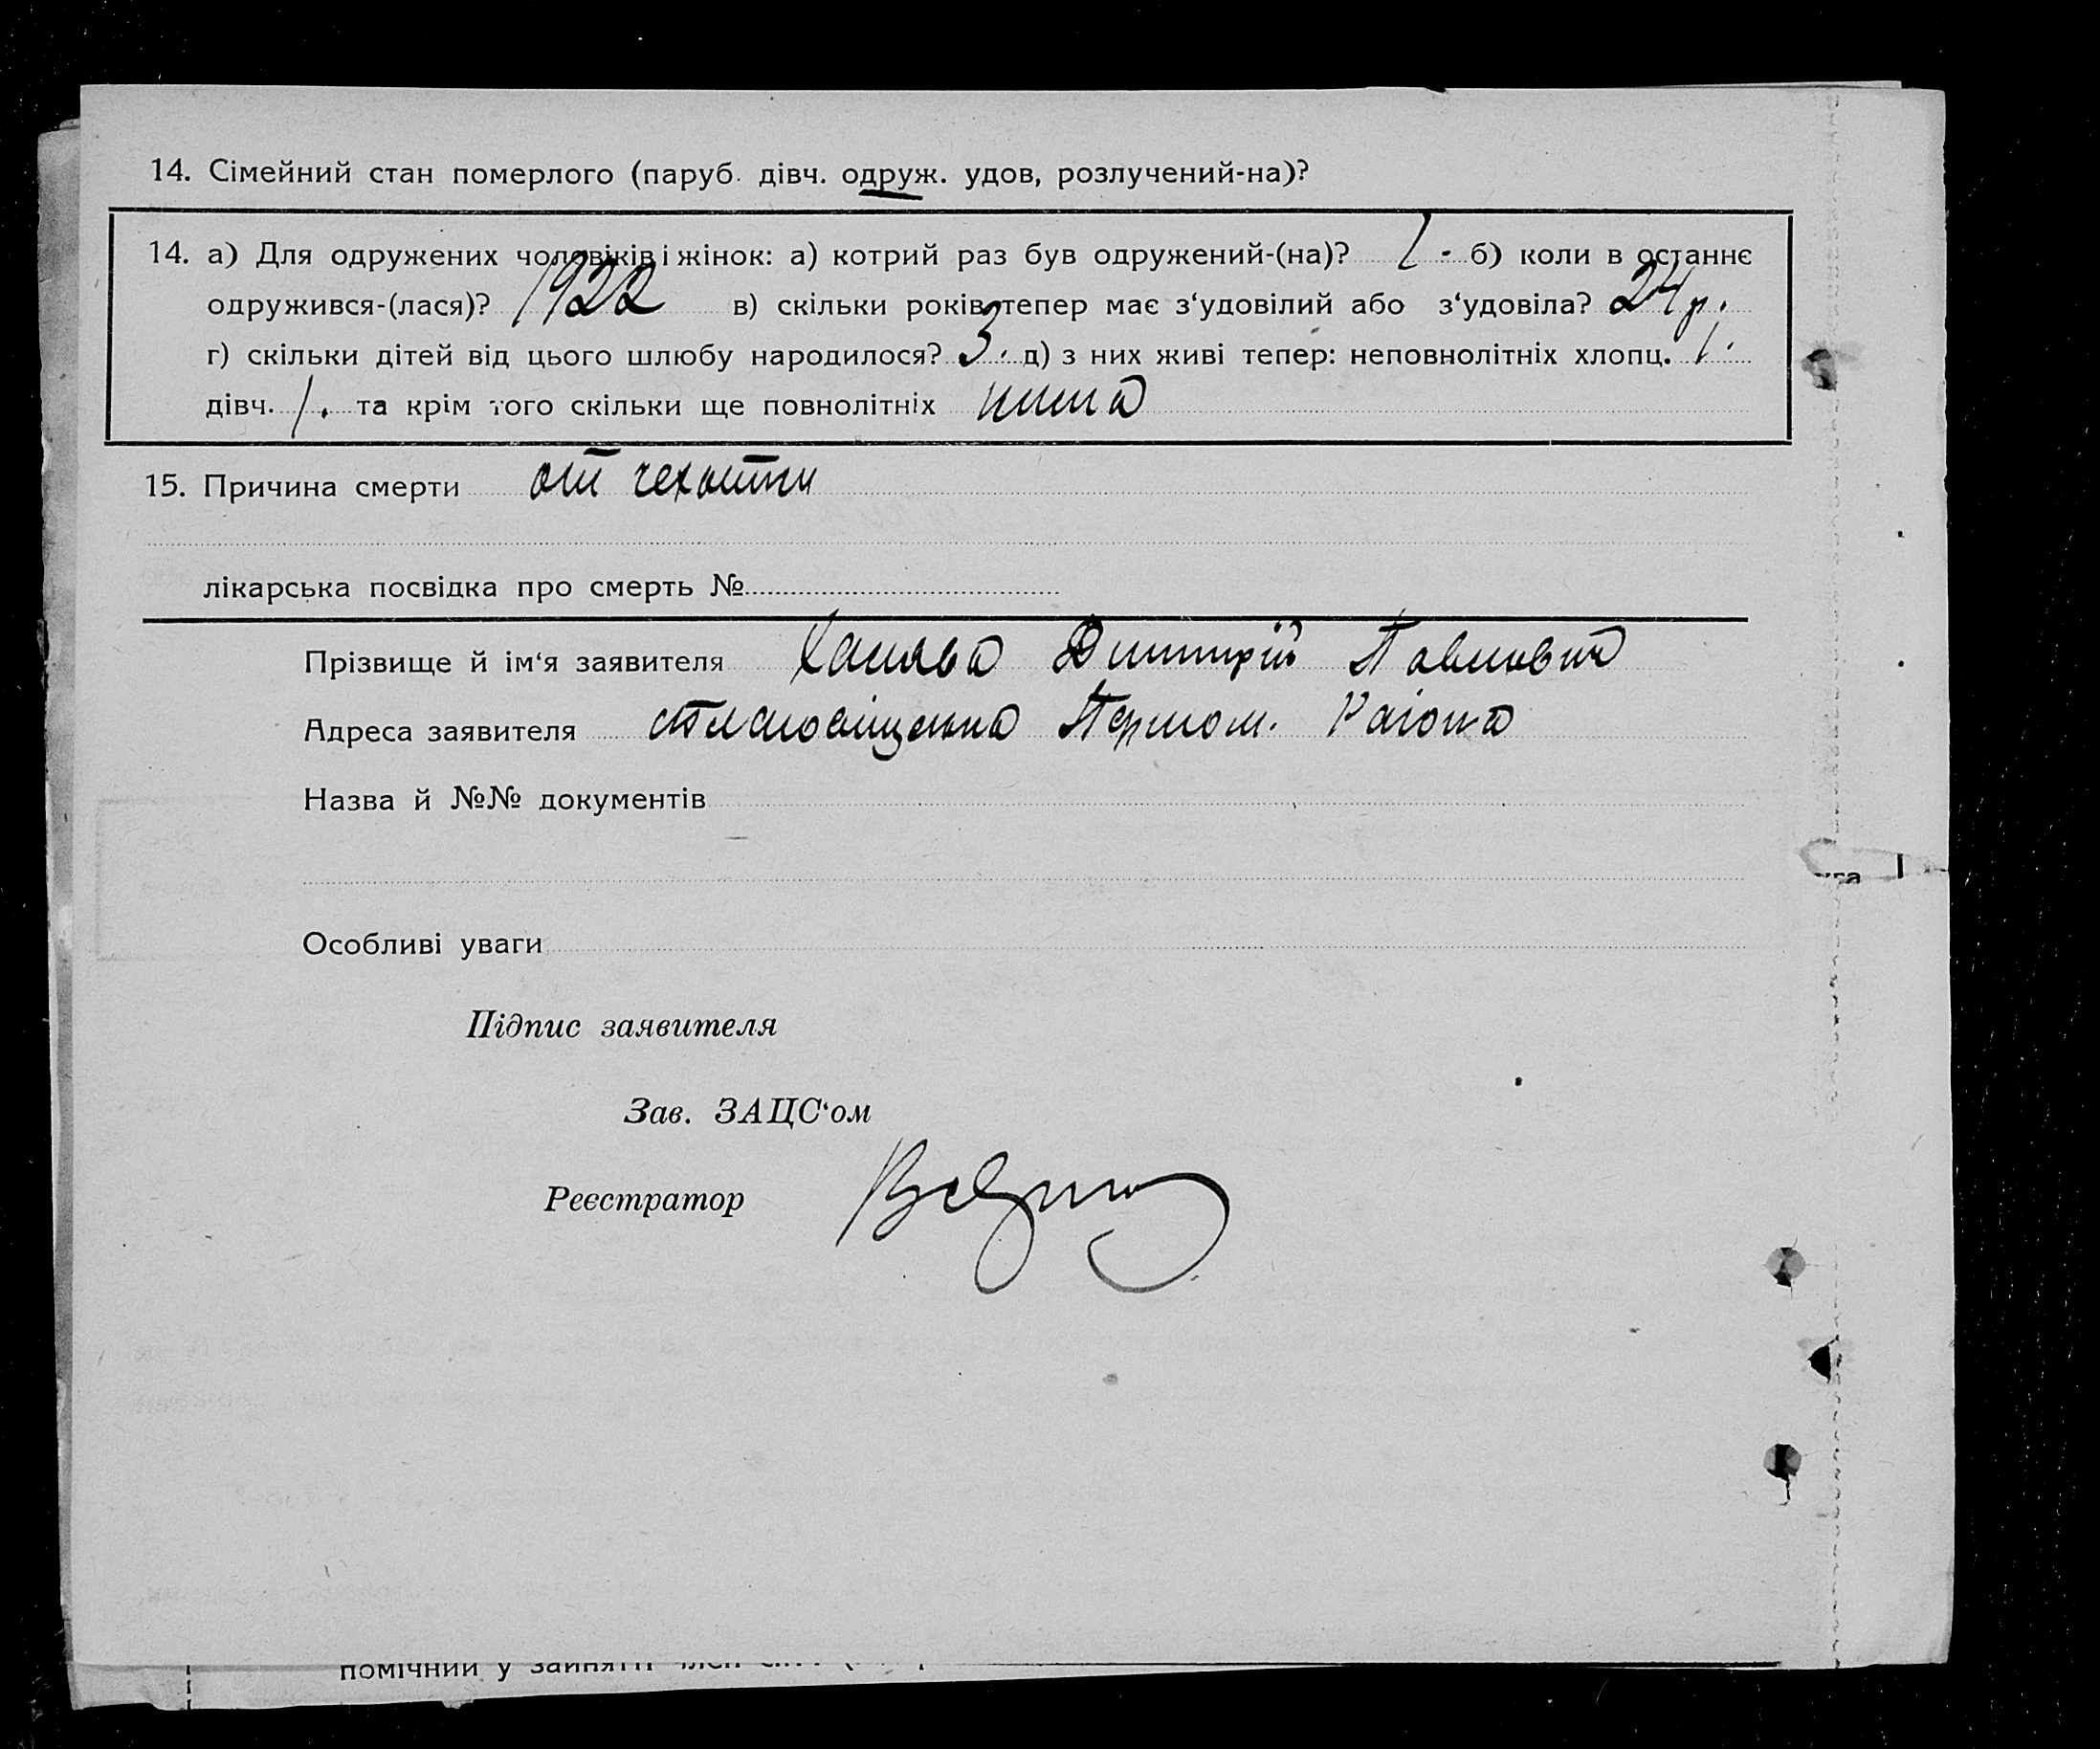 14. Сімейний стан померлого (паруб. дівч. одруж. удов, розлучений-на)?
14. а) Для одружених чоловіків і жінок: а) котрий раз був одружений-(на)? 1. б) коли в останнє
одружився-(лася)? 1922 в) скільки років тепер має з‘удовілий або з‘удовіла? 24 р.
г) скільки дітей від цього шлюбу народилося? 3. д) з них живі тепер: неповнолітніх хлопц. 1.
дівч. 1. та крім того скільки ще повнолітніх
15. Причина смерти от чехотки
лікарська посвідка про смерть №
Прізвище й ім‘я заявителя Дмитрій Павлович
Адреса заявителя Первом. Района
Назва й №№ документів
Особливі уваги
Підпис заявителя
Зав. ЗАЦС‘ом
Реєстратор